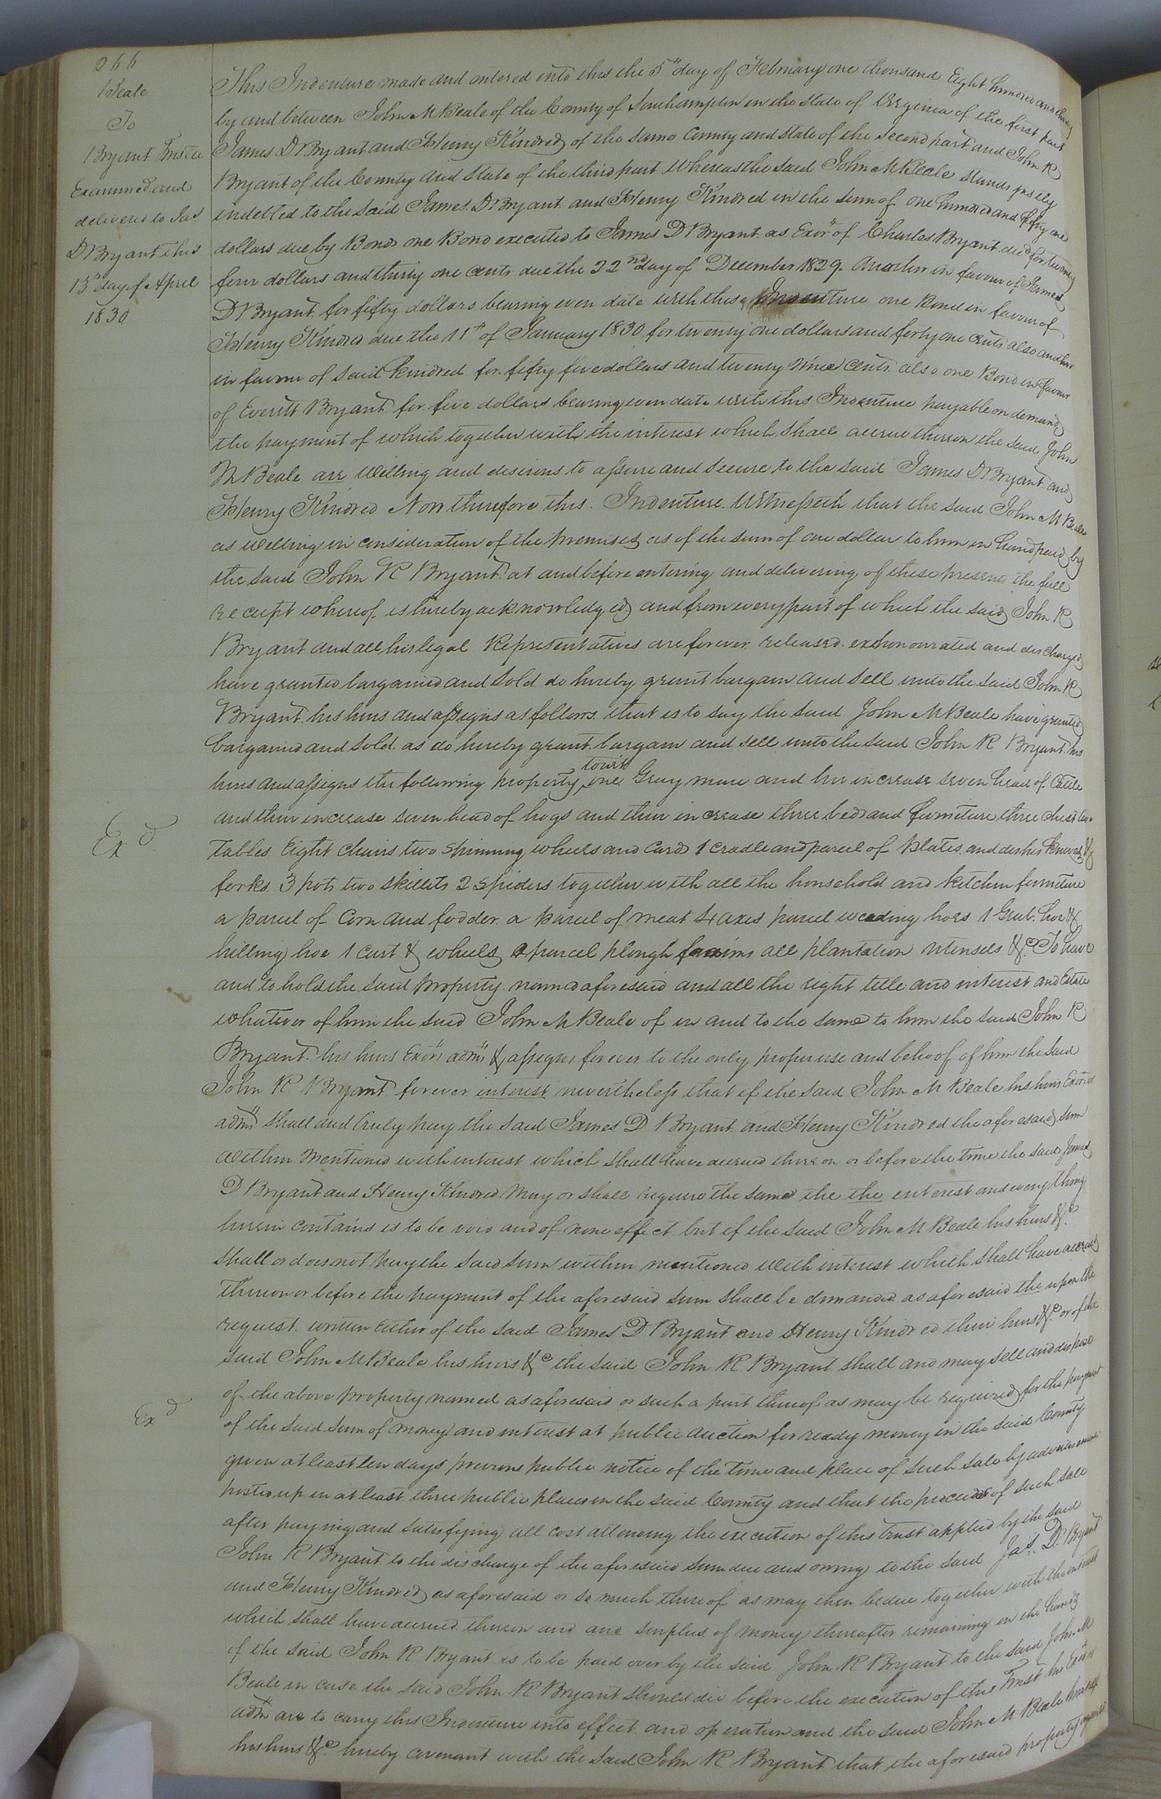 266
Beale
To
Bryant Trustee
Examined and
delivered to Jas
D Bryant this
13th day of April
1830
This Indenture made and entered into this the 5th day of February one thousand Eight hundred and thirty
by and between John M Beale of the County of Southampton in the state of Virginia of the first part
James D Bryant and Henry Kindred of the same County and state of the second part and John R
Bryant of the County and State of the third part Whereas the said John M Beale stands justly
indebted to the said James D Bryant and Henry Kindred in the sum of one hundred and fifty one
dollars due by Bonds one Bond executed to James D Bryant as Exor of Charles Bryant decd for twenty
four dollars and thirty one cents due the 22nd day of December 1829. Another in favour of James
D Bryant for fifty dollars bearing even date with these Indenture one Bond in favour of
Henry Kindred due the 11th of January 1830 for twenty one dollars and forty one cents also another
in favour of said Kindred for fifty five dollars and twenty nine cents also one Bond in favour
of Everitt Bryant for five dollars bearing even date with this Indenture payable on demand
the payment of which together with the interest which shall accrue thereon the said John
M Beale are willing and desirous to assure and secure to the said James D Bryant and
Henry Kindred Now therefore this Indenture Witnesseth that the said John M Beale
as willing in consideration of the premises as of the sum of one dollar to him in hand paid by
the said John R Bryant at and before entering and delivering of these presents the full
receipt whereof is hereby acknowledged and from every part of which the said John R
Bryant and all his legal Representatives are forever released exhonourated and discharged
have granted bargained and sold do hereby grant bargain and sell unto the said John R
Bryant his heirs and assigns as follows that is to say the said John M Beale have granted
bargained and sold as do hereby grant bargain and sell unto the said John R Bryant his
heirs and assigns the following property towit one Gray mare and her increase seven head of Cattle
and their increase seven head of hogs and their increase three beds and furniture three chests two
Exd
tables Eight chairs two spinning wheels and cards 1 cradle and parcel of plates and dishes knives &
forks 3 pots two skillets 2 spiders together with all the household and kitchen furniture
a parcel of Corn and fodder a parcel of meat 4 axes parcel weeding hoes 1 Grub hoe &
hilling hoe 1 cart & wheels a parcel plough all plantation utensels &c To have
and to hold the said property named aforesaid and all the right title and interest and Estate
whatever of him the said John M Beale of in and to the same to him the said John R
Bryant his heirs Exors admrs & assigns forever to the only proper use and behoof of him the said
John R Bryant forever interest nevertheless that if the said John M Beale his heirs Exors or
admrs shall and truly pay the said James D Bryant and Henry Kindred the aforesaid sum
within mentioned with interest which shall have accrued thereon or before the time the said James
D Bryant and Henry Kindred may or shall require the same the the interest and everything
herein contained is to be void and of none effect but if the said John M Beale his heirs &c
shall or does not pay the said sum within mentioned with interest which shall have accrued
thereon or before the payment of the aforesaid sum shall be demanded as aforesaid the upon the
request written either of the said James D Bryant and Henry Kindred their heirs &c or of the
said John M Beale his heirs &c the said John R Bryant shall and may sell and dispose
Exd
of the above property named as aforesaid or such a part thereof as may be required for the payment
of the said sum of money and interest at public auction for ready money in the said County
given at least ten days previous public notice of the time and place of such sale by advertisement
posted up in at least three public places in the said County and that the proceeds of such sale
after paying and satisfying all cost attending the execution of this trust applied by the said
John R Bryant to the discharge of the aforesaid sum due and owing to the said Jas. D. Bryant
and Henry Kindred as aforesaid or so much thereof as may then be due together with the interest
which shall have accrued thereon and and surplus of money thereafter remaining in the hands
of the said John R Bryant is to be paid over by the said John R Bryant to the said John M
Beale in case the said John R Bryant should die before the execution of this Trust his Exors or
admrs are to carry this Indenture into effect and operation and the said John M Beale himself
his heirs &c hereby covenant with the said John R Bryant that the aforesaid property